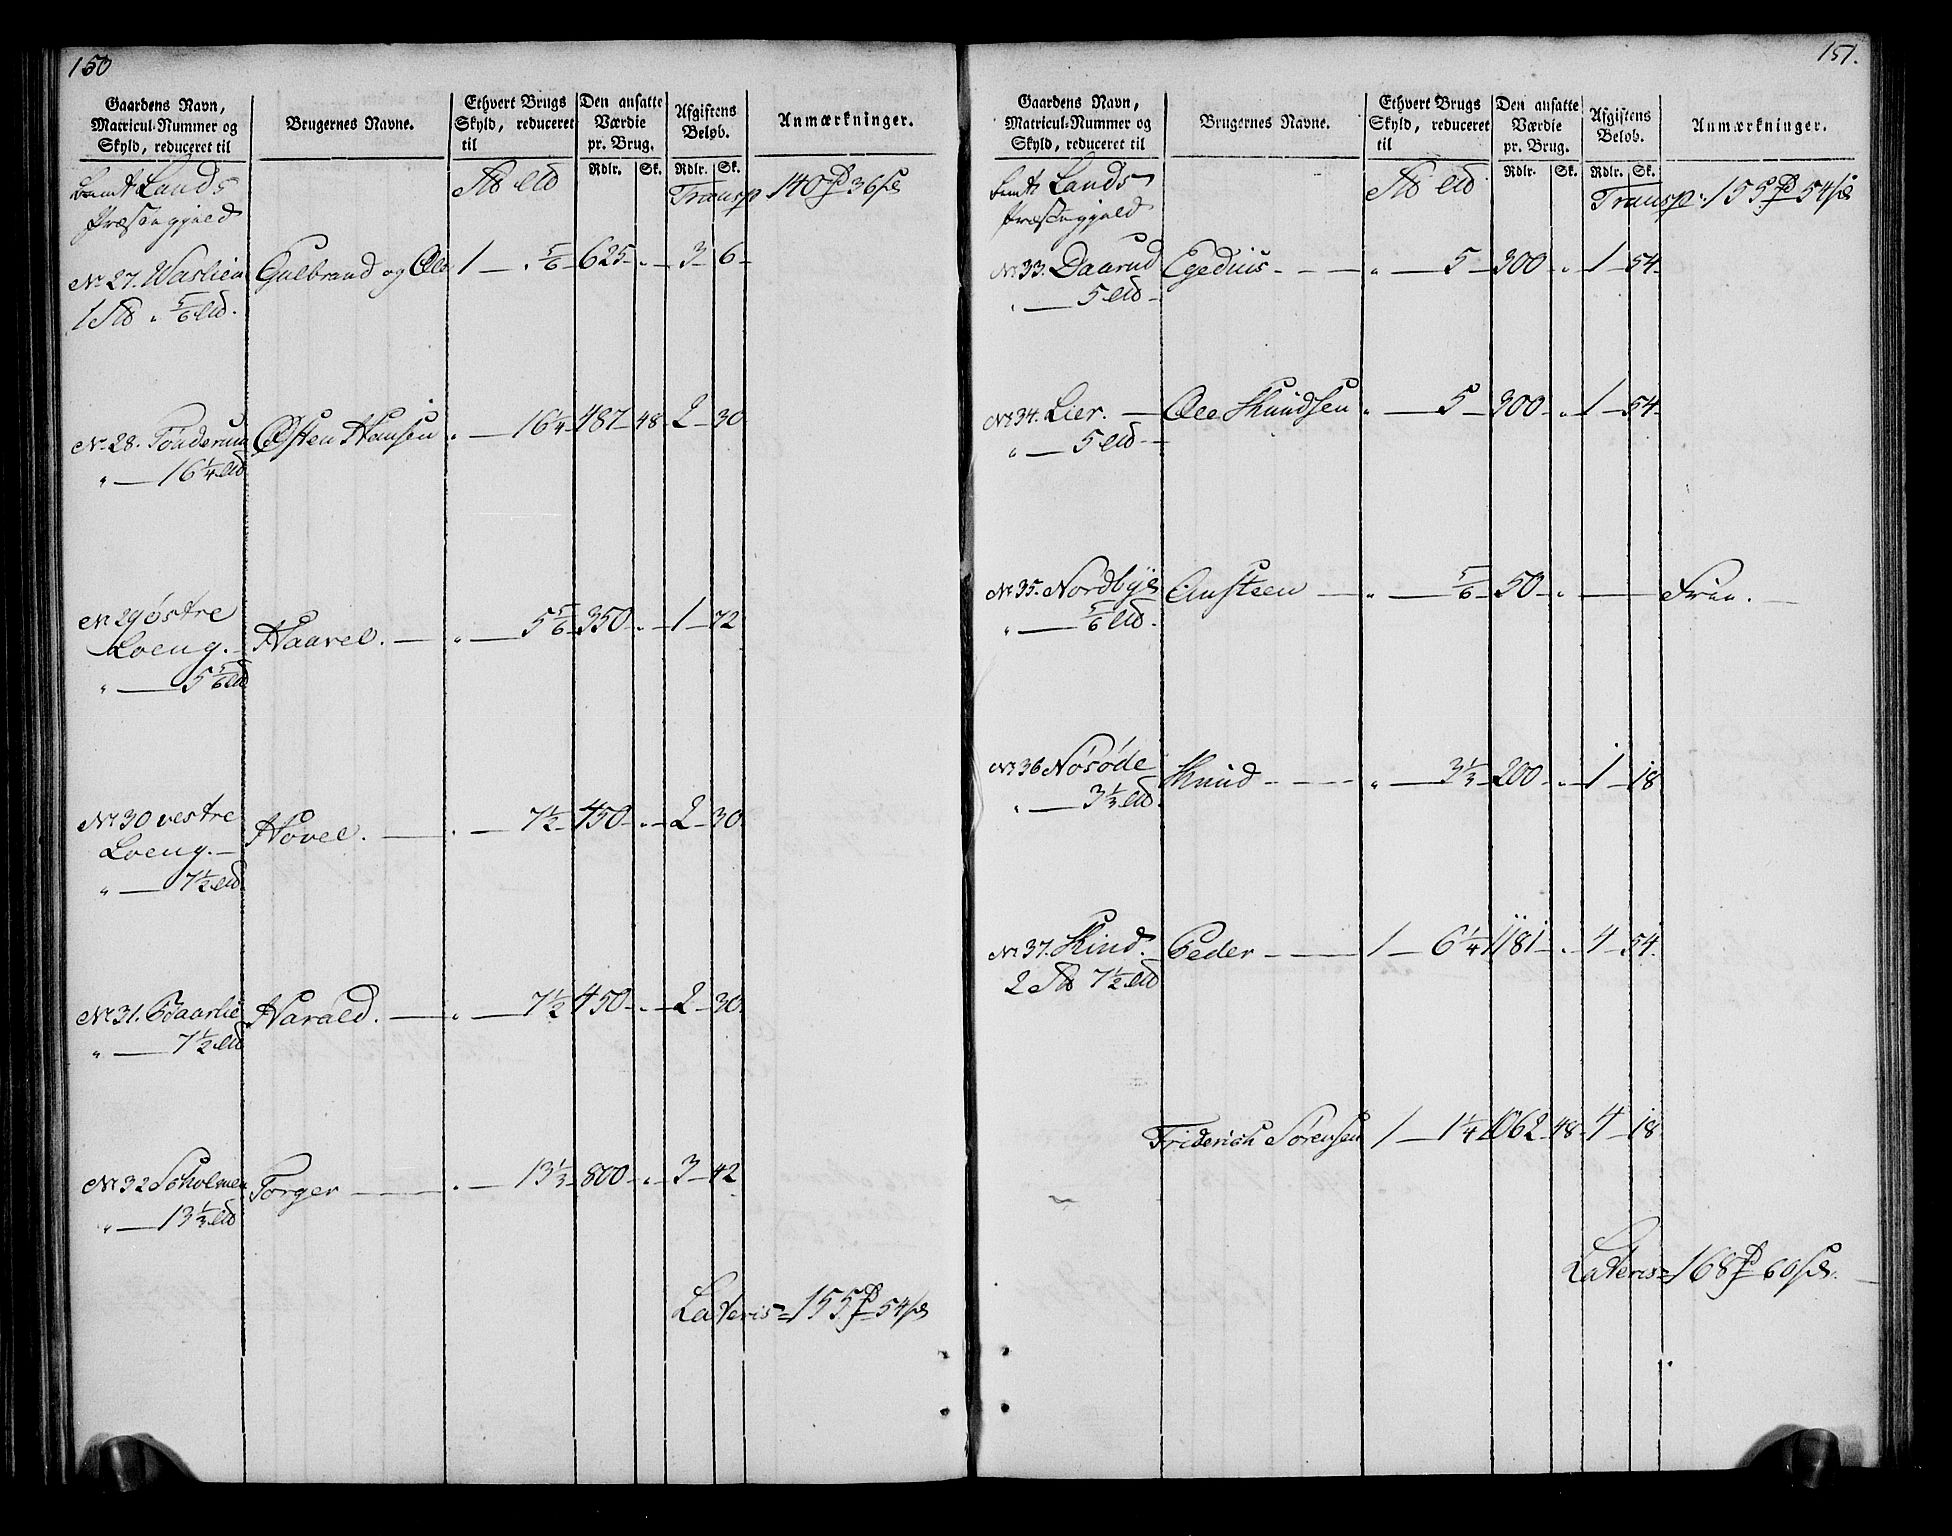 150
Gaardens Navn, Matricul-Nummer og Skyld, reduceret til
Brugernes Navne.
Ethvert Brugs Skyld, reduceret til
Den ansatte Værdie pr. Brug.
Afgiftens Beløb.
Anmærkninger.
Rdlr. Sk. Rdlr. Sk.
Lands Præstegjeld
Transp 140 36
No 27. Warlien Gulbrand og Ole 1 — " 5/6 — 625 — " — 3 — 6 —
1 " 5/6
No 28. Tonderum Østen Hansen " — 16 1/4 — 487 — 48 — 2 — 30
" — 16 1/4
No 29 østre
Loeng. — Haavel. — " — 5 5/6 — 350 — " — 1 — 72
" — 5 5/6
No 30 vestre
Loeng. — Hovel. — " — 7 1/2 — 450 — " — 2 — 30
" — 7 1/2
No 31. Baarlie Harald. — " — 7 1/2 450 — " — 2 — 30
" — 7 1/2
No 32 Soholmen Torger — " — 13 1/3 — 800 — " — 3 — 42
" — 13 1/3
Lateris = 155 54
151.
Gaardens Navn, Matricul-Nummer og Skyld, reduceret til
Brugernes Navne.
Ethvert Brugs Skyld, reduceret til
Den ansatte Værdie pr. Brug.
Afgiftens Beløb.
Anmærkninger.
Rdlr. Sk. Rdlr. Sk.
Lands Præstegjeld
Transp: 155 54
No 33. Daarud Egedius — " — 5 — 300 — " — 1 — 54
" — 5
No 34. Lier. — Ole Knudsen " — 5 — 300 — " — 1 — 54
" — 5
No 35. Nordbye Ansteen — " — 5/6 — 50 — " — Frie. —
" — 5/6
No 36 Nosøde Knud — " — 3 1/3 — 200 — " — 1 — 18
" — 3 1/3
No 37. Kind. Peder — 1 — 6 1/4 1181 — " — 4 — 54
2 7 1/2
Friderich Sørensen 1 — 1 1/4 1062 — 48 — 4 — 18
Lateris = 168 60